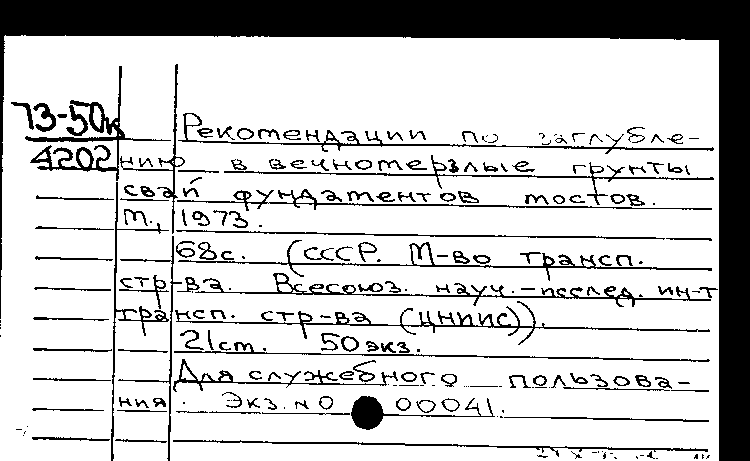 73-50к
4202
Рекомендации по заглубле-
нию в вечномерзлые грунты
свай фундаментов мостов.
М., 1973.
68с. (СССР. М-во трансп.
стр-ва. Всесоюз. науч.-исслед. ин-т
трансп. стр-ва (ЦНИИС)).
21см. 50экз.
Для служебного пользова-
ния. Экз. № 00041.